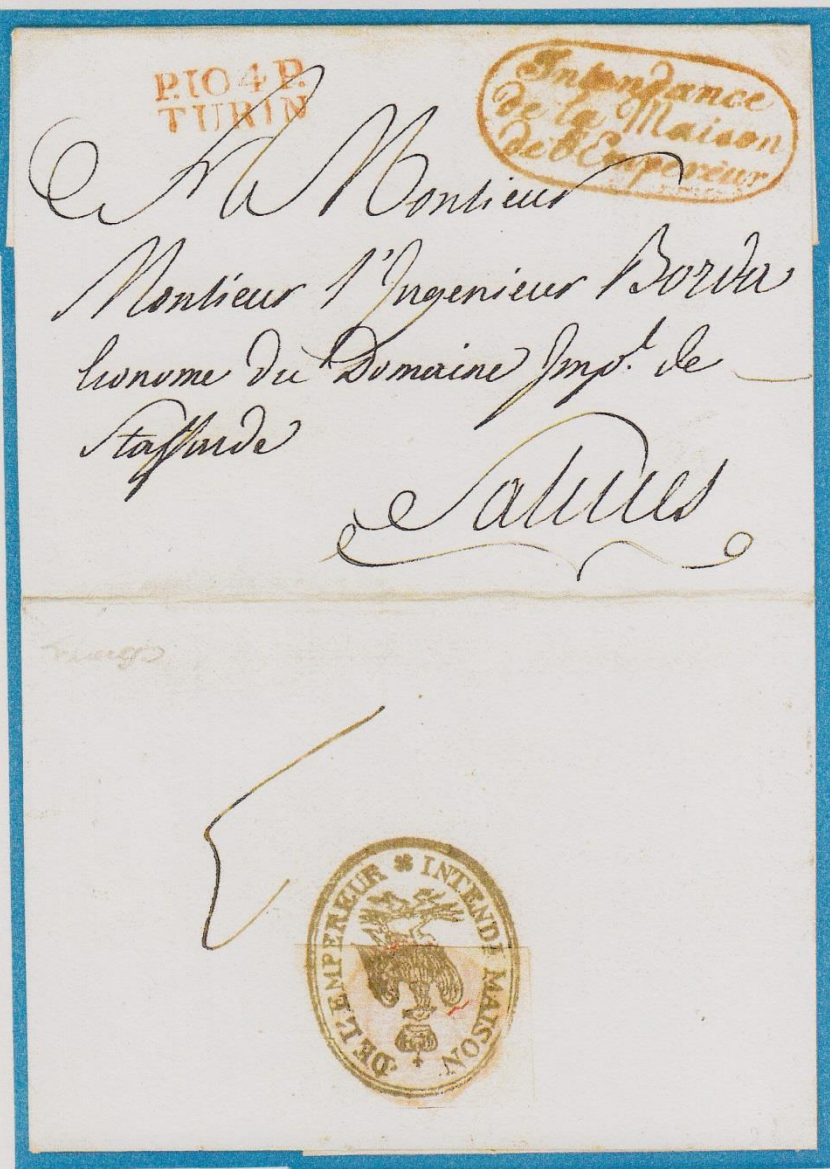 P.104.P.
TURIN
Intendance
de la Maison
de l'Empereur
A Monsieur
Monsieur l'Ingenieur Borda
Econome du Domaine Imp.l de
Staffarde
Saluces
DE L'EMPEREUR * INTENDE MAISON